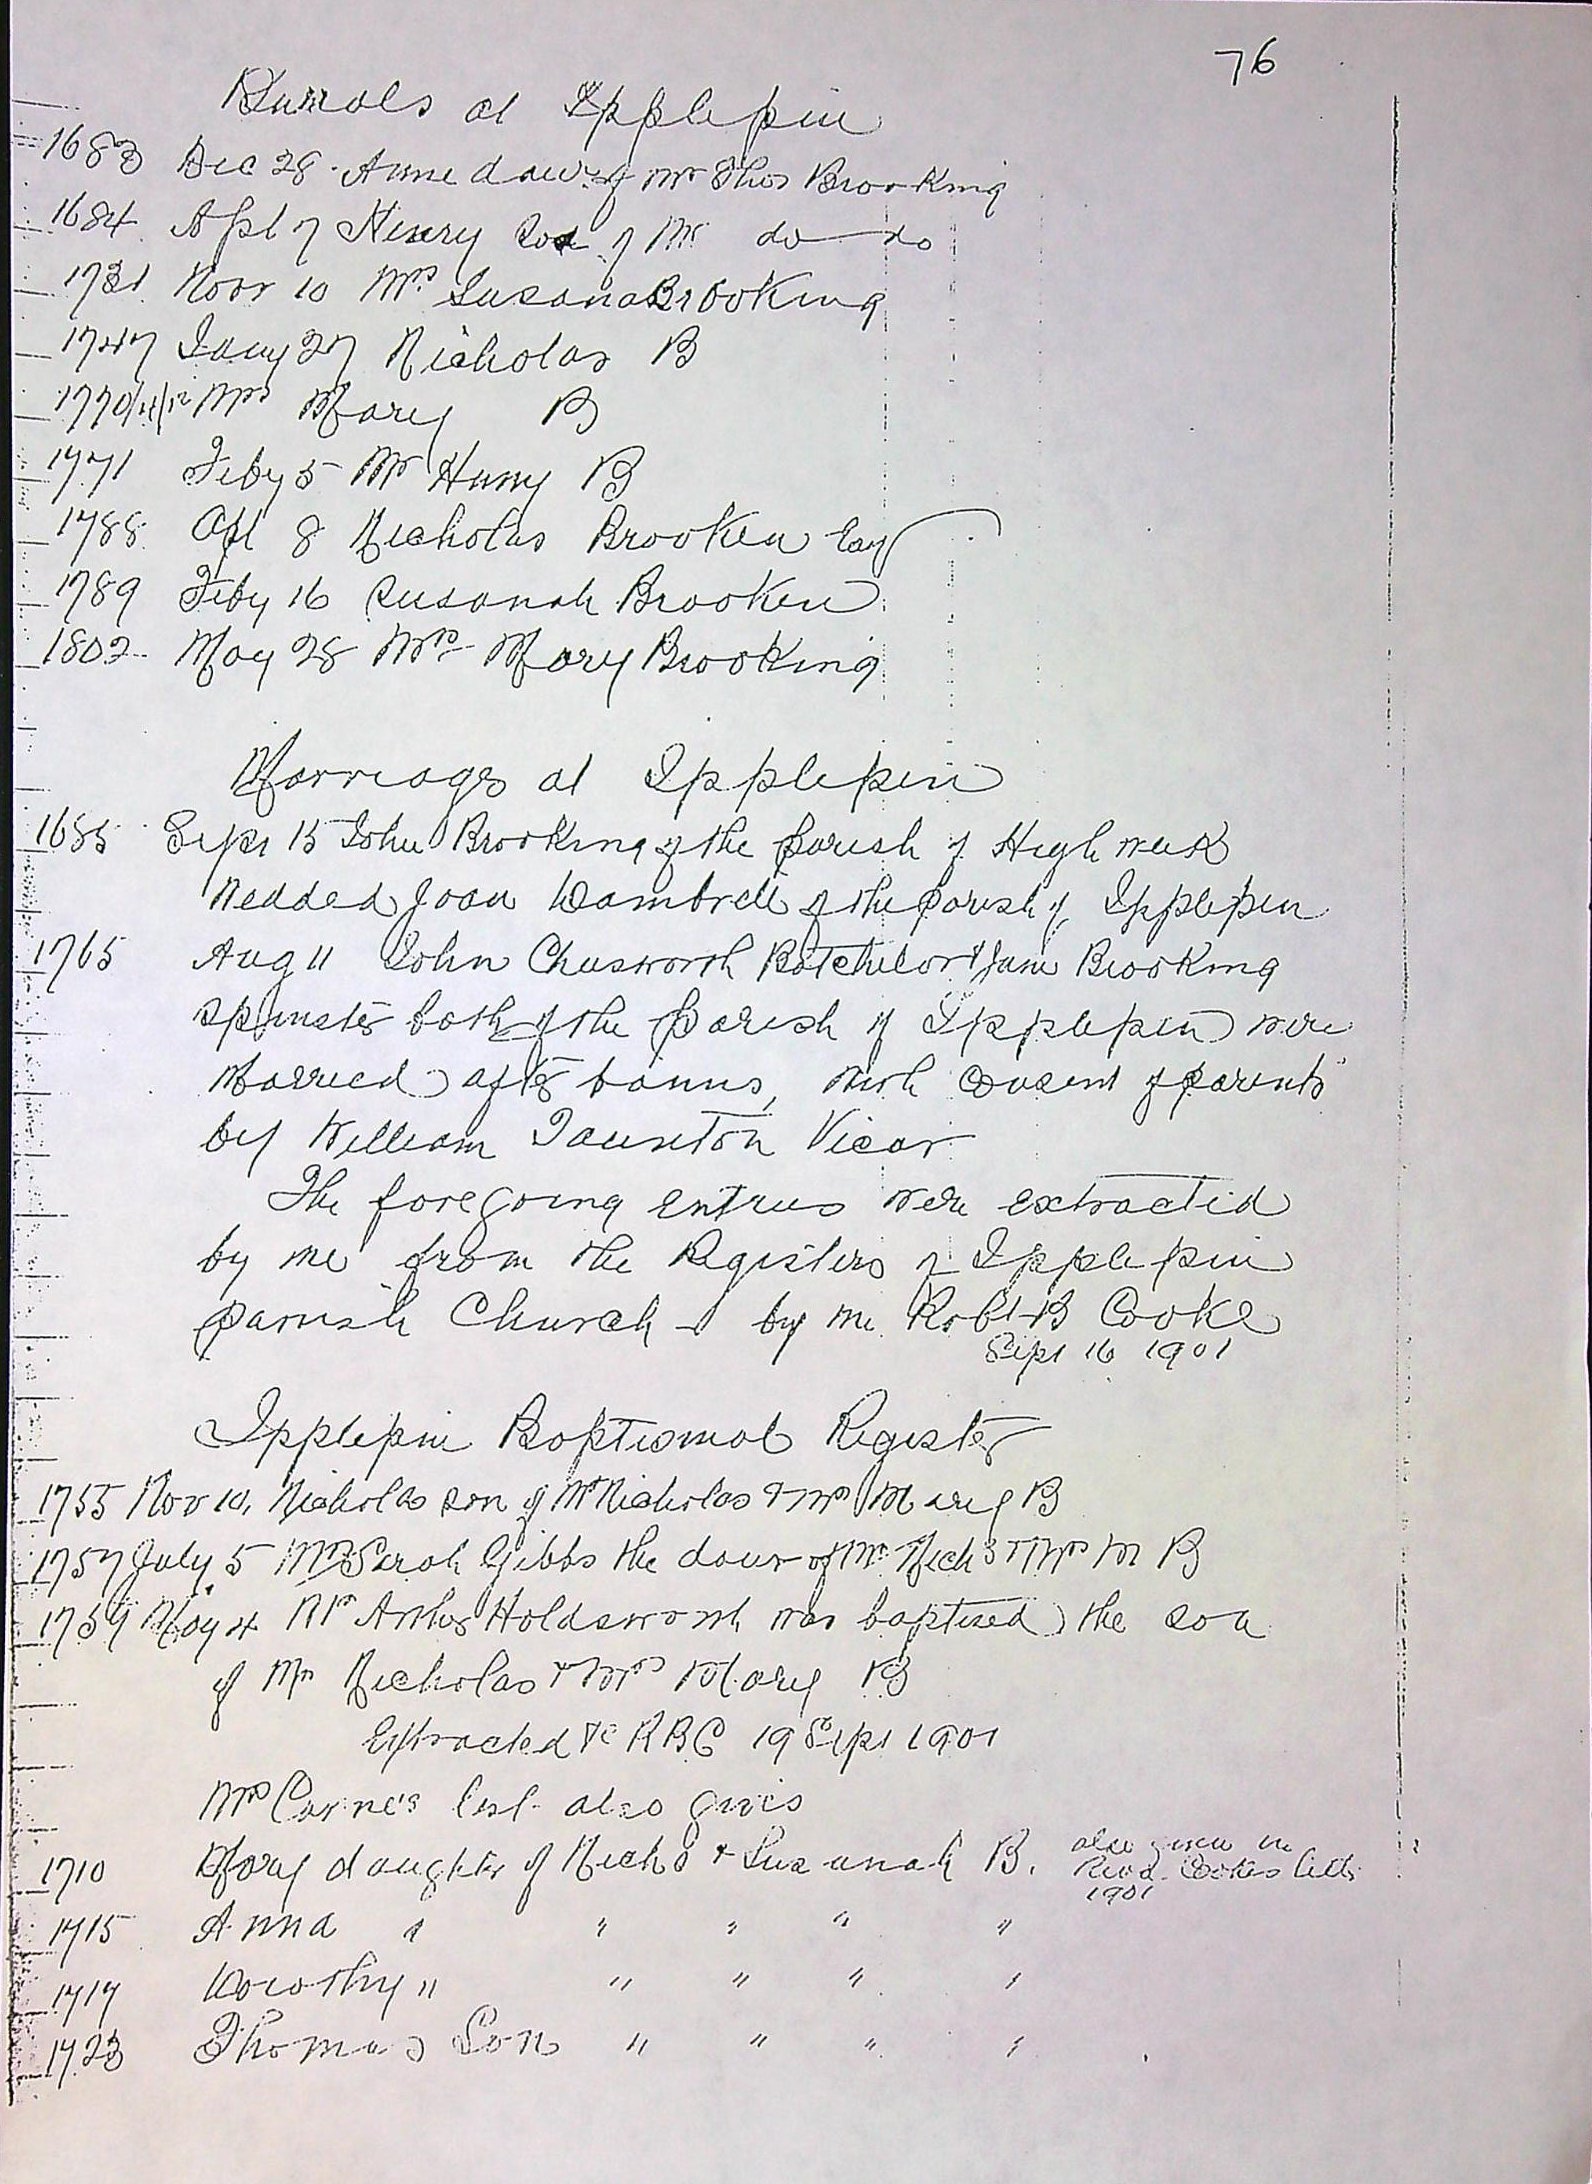 76
Burials at Ipplepin
1683 Dec 28 Anne daur of Mr Thos Brooking
1684 Apl 7 Henry Son of Mr do do
1731 Novr 10 Mrs Susana Brooking
1747 Jany 27 Nicholas B
1770/4/12 Mrs Mary B
1771 Feby 5 Mr Henry B
1788 Apl 8 Nicholas Brooken Esq
1789 Feby 16 Susanah Brooken
1802 May 28 Mrs Mary Brooking
Marriages at Ipplepin
1685 Sept 15 John Brooking of the parish of High week
Wedded Joan Dambrell of the parish of Ipplepen
1765 Aug 11 John Chusworth Batchelor & Jane Brooking
spinster both of the parish of Ipplepin were
married after banns, with consent of parents
by William Taunton Vicar
The foregoing entries were extracted
by me from the Registers of Ipplepin
parish Church by me Robt B Cooke
Sept 16 1901
Ipplepin Baptismal Register
1755 Nov 10, Nicholas son of Mr Nicholas & Mrs Mary B
1757 July 5 Mrs Sarah Gibbs the daur of Mr Nichs & Mrs M B
1759 May 4 Mr Arthur Holdsworth was baptized the son
of Mr Nicholas & Mrs Mary B
Extracted &c RBC 19 Sept 1901
Mrs Carne's list also gives
1710 Mary daughter of Nichs & Susanah B. also given in
Revd Cookes letter
1901
1715 Anna " " " " "
1717 Dorothy " " " " "
1723 Thomas Son " " " "